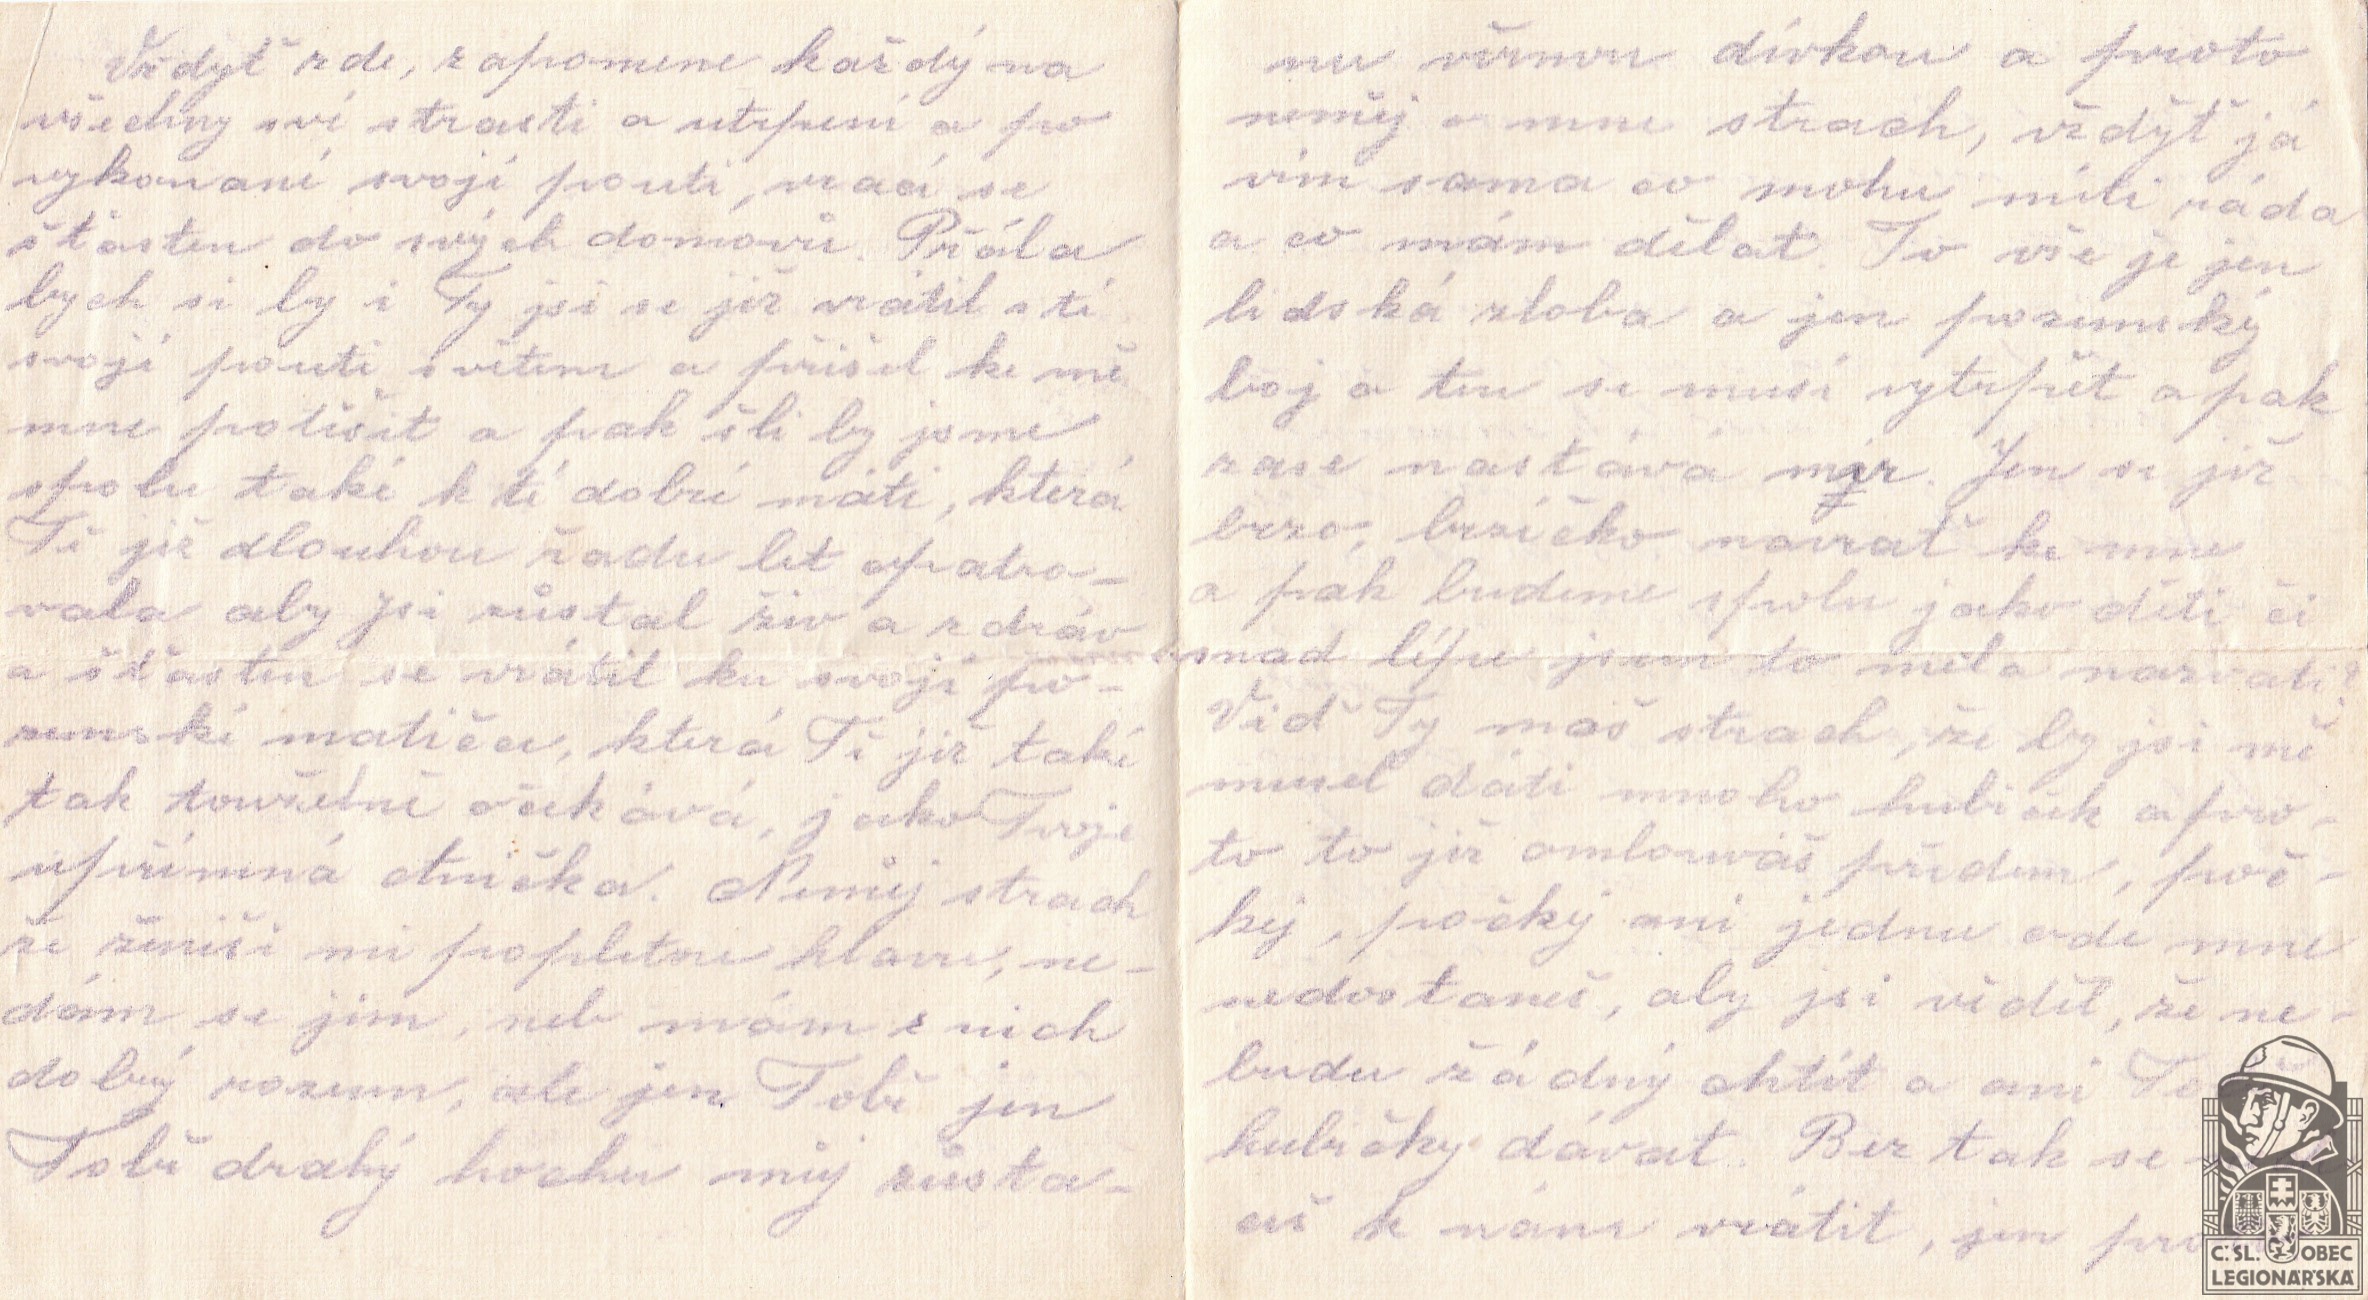 Vždyť zde, zapomene každý na
všechny své strasti a utrpení a po
vykonané svojí pouti, vrací se
šťasten do svých domovů. Přála
bych si by i Ty jsi se již vrátil s té
svojí pouti světem a přišel ke mě
mne potěšit a pak šli by jsme
spolu také k té dobré máti, která
Tě již dlouhou řadu let opatro-
vala aby jsi zůstal živ a zdráv
a šťasten se vrátil ku svojí po-
zemské matičce, která Tě již také
tak toužebně očekává, jako Tvoje
upřímná Anička. Neměj strach
že ženiši mi popletou hlavu, ne-
dám se jim, neb mám z nich
dobrý rozum, ale jen Tobě jen
Tobě drahý hochu můj zůsta-
nu věrnou dívkou a proto
neměj o mne strach, vždyť já
vím sama co mohu míti ráda
a co mám dělat. To vše je jen
lidská zloba a jen pozemský
boj a ten se musí vytrpět a pak
zase nastává mír. Jen se již
brzo, brzičko navrať ke mne
a pak budeme spolu jako děti či
snad lépe jsem to měla nazvati?
Viď Ty máš strach, že by jsi mě
musel dáti mnoho hubiček a pro-
to to již omlouváš předem, poč-
kej, počkej ani jednu ode mne
nedostaneš, aby jsi věděl, že ne-
budu žádný chtít a ani
hubičky dávat. Bez tak se
ceš k nám vrátit, jen
Č. SL. OBEC
LEGIONÁŘSKÁ